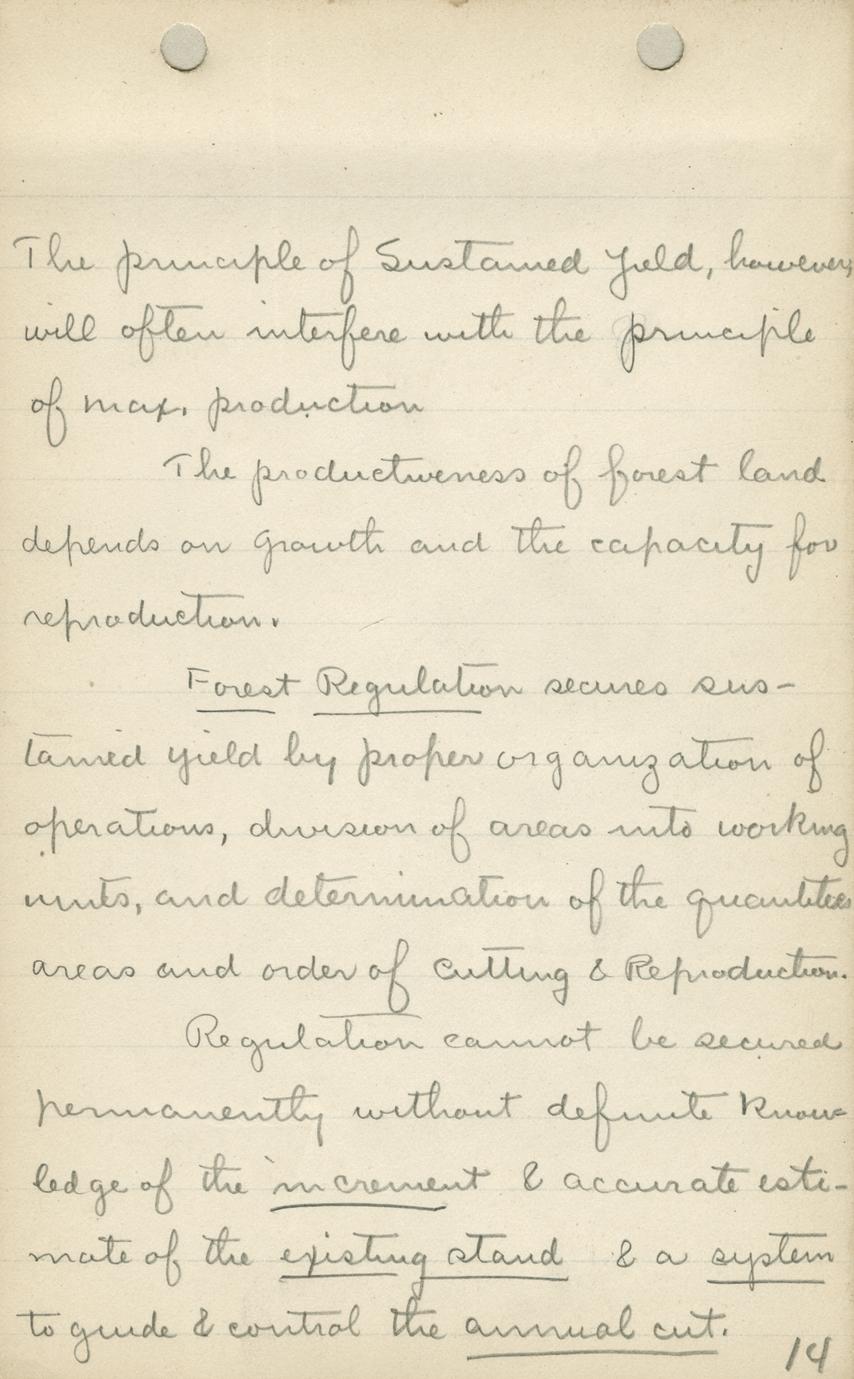 The principle of Sustained Yield, however,
will often interfere with the principle
of max. production
The productiveness of forest land
depends on growth and the capacity for
reproduction.
Forest Regulation secures sus-
tained yield by proper organization of
operations, division of areas into working
units, and determination of the quantities
areas and order of cutting & Reproduction.
Regulation cannot be secured
permanently without definite know-
ledge of the increment & accurate esti-
mate of the existing stand & a system
to guide & control the annual cut.
14